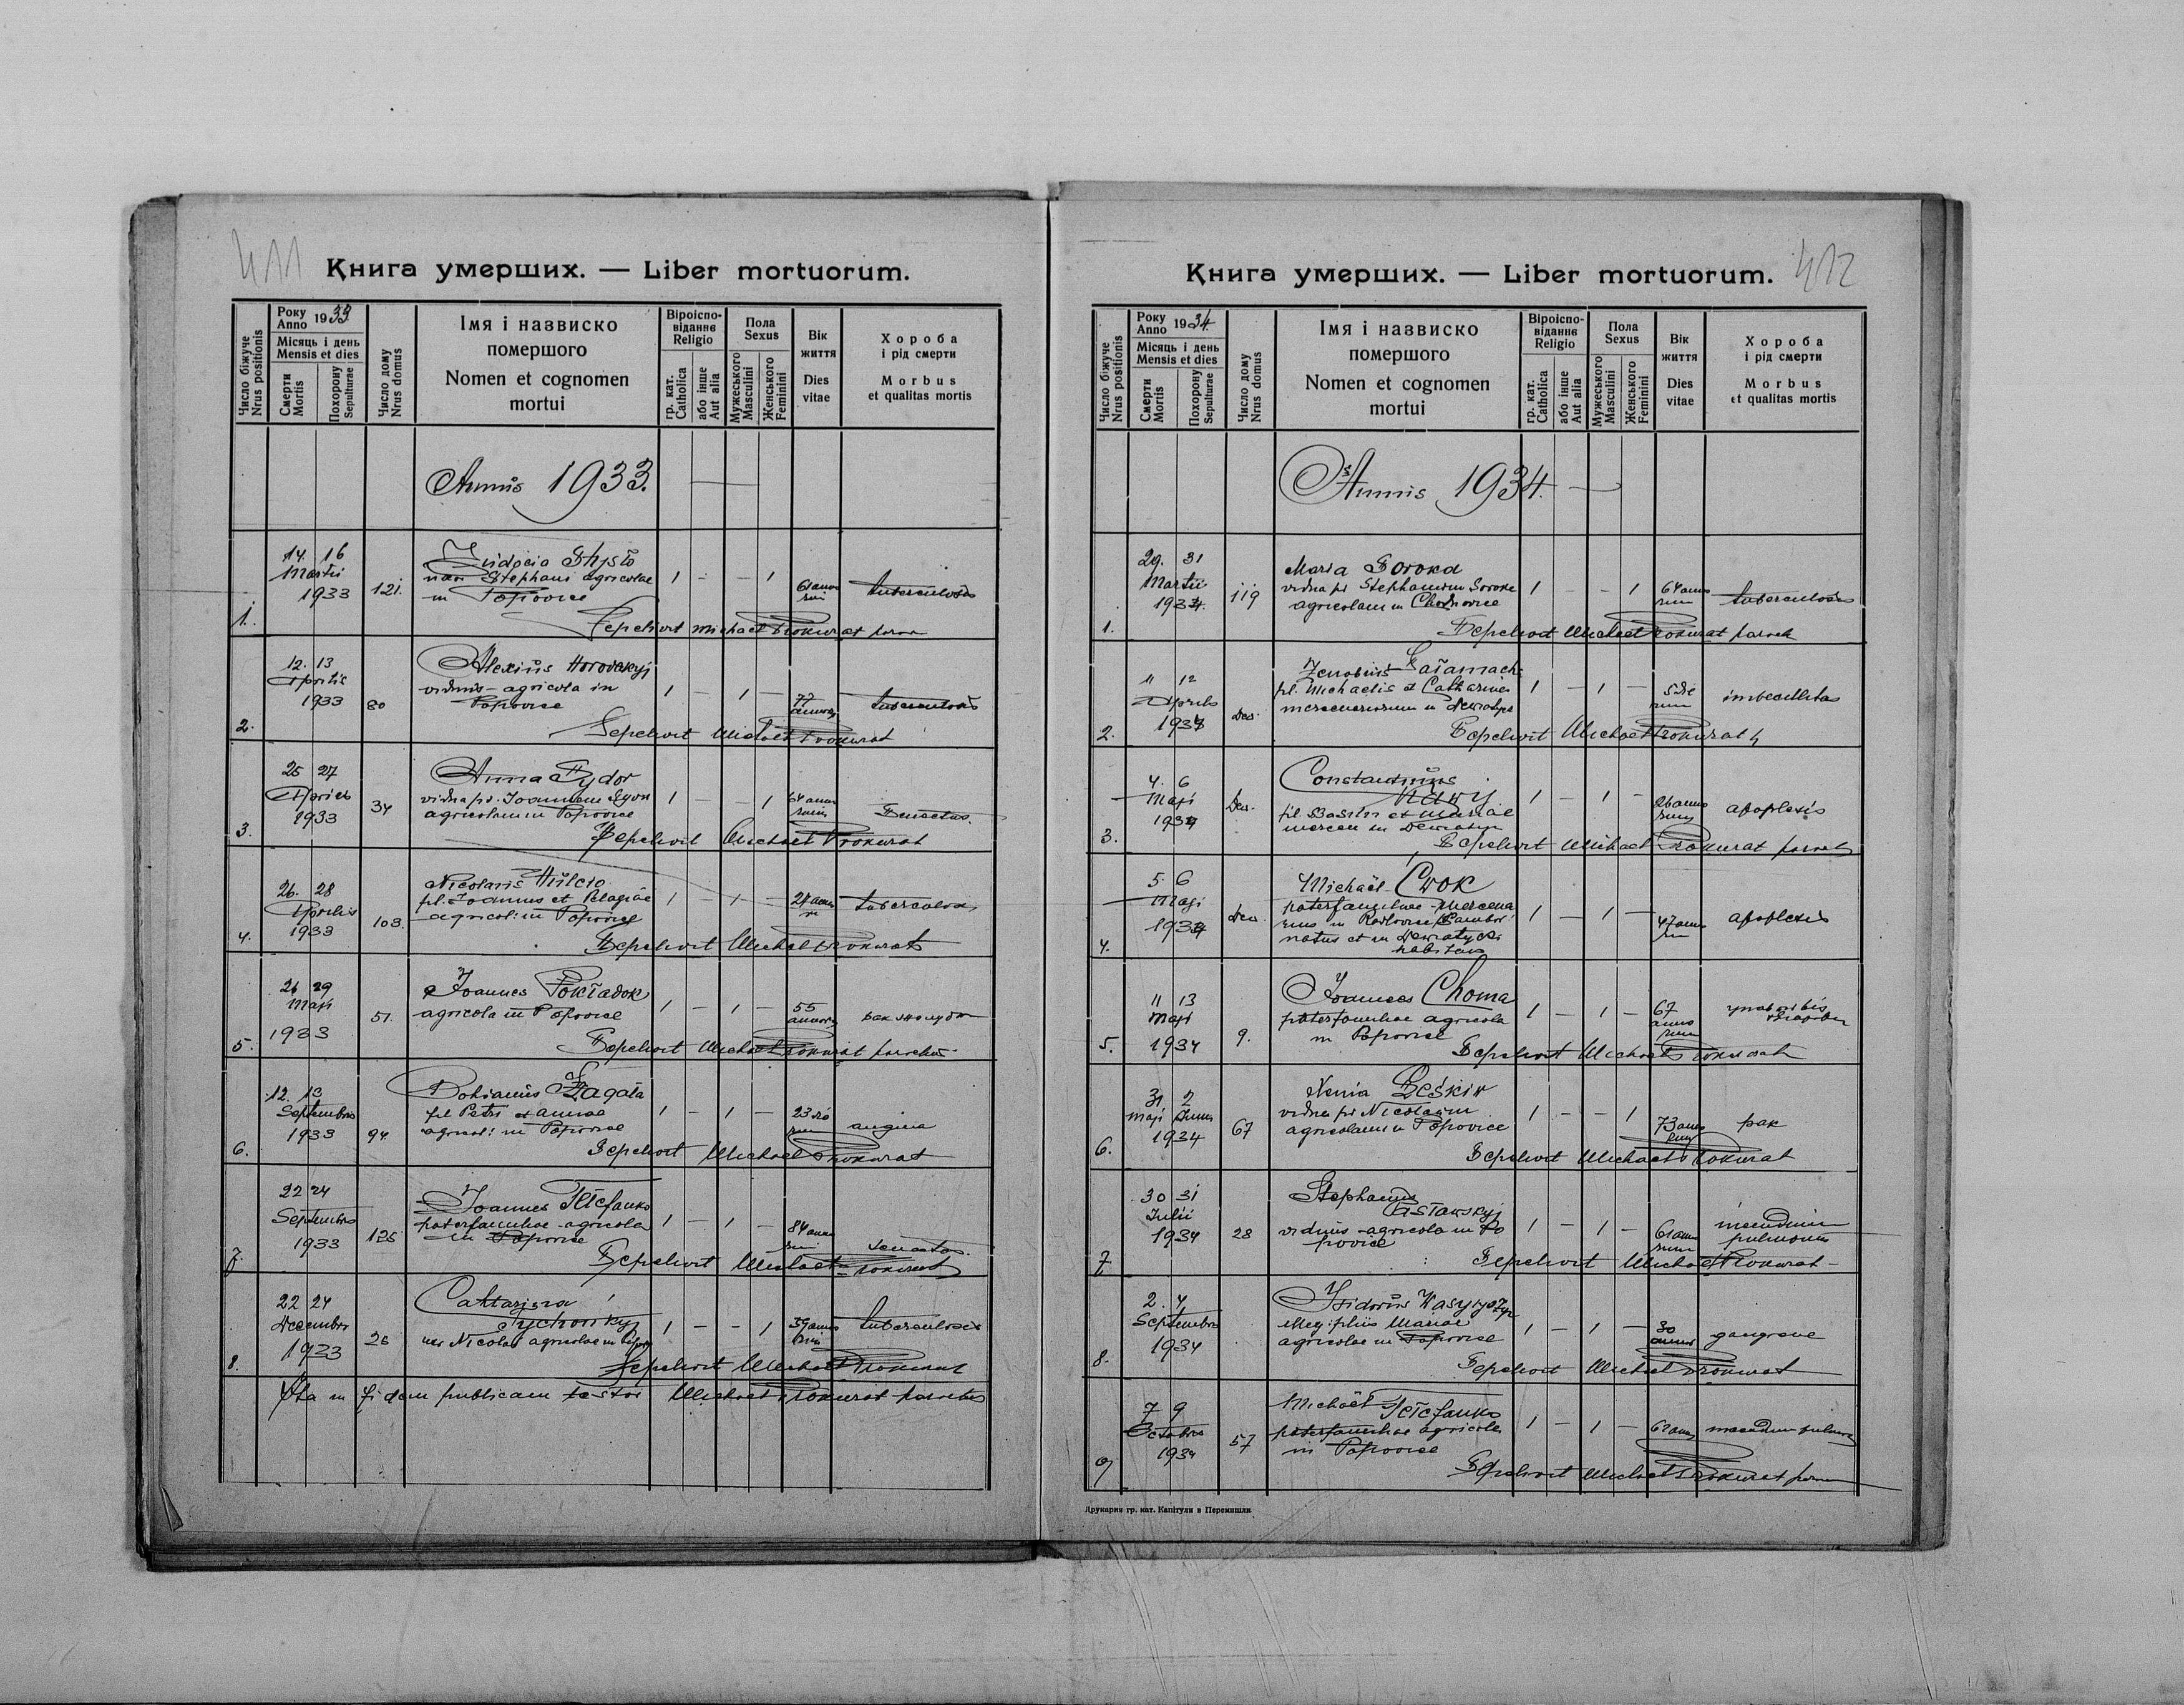 411
Книга умерших. — Liber mortuorum.
Число біжуче
Nrus positionis
Року
Anno 1933
Місяць і день
Mensis et dies
Смерти
Mortis
Похорону
Sepulturae
Число дому
Nrus domus
Імя і назвиско
помершого
Nomen et cognomen
mortui
Віроіспо-
віданнє
Religio
гр. кат.
Catholica
або інше
Aut alia
Пола
Sexus
Мужеського
Masculini
Женського
Feminini
Вік
життя
Dies
vitae
Хороба
і рід смерти
Morbus
et qualitas mortis
Annus 1933.
1.
14. 16
Martii
1933
121.
Stephani agricolae
in Popovice
1 - - 1
tuberculosis
Sepelivit Michael Prokurat
2.
12. 13
Aprilis
1933
80
Alexius Horodskyj
viduus - agricola in
Popovice
1 - 1 -
77
annorum
tuberculosis
Sepelivit Michael Prokurat
3.
25 27
Aprilis
1933
34
Anna Sydor
vidua p. Joannem Sydor
agricolam in Popovice
1 - - 1
64 anno
rum
Senectus.
Sepelivit Michael Prokurat
4.
26. 28
Aprilis
1933
103.
Nicolaus
fil. Joannis et Pelagiae
agricol. in Popovice
1 - 1 -
tuberculosis
Sepelivit Michael Prokurat
5.
26 29
Maji
1933
51.
Joannes Pokładok
agricola in Popovice
1 - 1 -
55
annorum
Sepelivit Michael Prokurat parochus
6.
12. 13
Septembris
1933
94.
Zagała
fil Petri et Annae
agricol. in Popovice
1 - 1 -
23 die
rum
angina
Sepelivit Michael Prokurat
7.
22 24
Septembris
1933
125
Joannes Stefanko
paterfamiliae - agricola
in Popovice
1 - 1 -
84 anno
rum
Senectus.
Sepelivit Michael Prokurat
8.
22 24
Decembris
1933
26
Catharina
Nicolai agricolae in
1 - - 1
39 anno
rum
tuberculosis
Sepelivit Michael Prokurat
Ita in fidem publicam testor Michael Prokurat parochus
412
Книга умерших. — Liber mortuorum.
Число біжуче
Nrus positionis
Року
Anno 1934.
Місяць і день
Mensis et dies
Смерти
Mortis
Похорону
Sepulturae
Число дому
Nrus domus
Імя і назвиско
помершого
Nomen et cognomen
mortui
Віроіспо-
віданнє
Religio
гр. кат.
Catholica
або інше
Aut alia
Пола
Sexus
Мужеського
Masculini
Женського
Feminini
Вік
життя
Dies
vitae
Хороба
і рід смерти
Morbus
et qualitas mortis
Annus 1934.
1.
29. 31
Martii
1934.
119
Maria Soroka
vidua p. Stephanum Soroka
agricolam in Chodnovice
1 - - 1
64 anno
rum
tuberculosis
Sepelivit Michael Prokurat paroch
2.
11 12
Aprilis
1934
Dew.
Zenobius
fil. Michaelis et Catharinae
1 - 1 -
5 die
rum
imbecillitas
Sepelivit Michael Prokurat
3.
4. 6
Maji
1934
Dew.
Constantinus
fil Basilii et Mariae
1 - 1 -
26 anno
rum
apoplexis
Sepelivit Michael Prokurat
4.
5. 6
Maji
1934
Dew.
Michaël Cwok
paterfamiliae - mercena
natus et in
habitans
1 - 1 -
47 anno
rum
apoplexis
5.
11 13
Maji
1934
9.
Joannes Choma
paterfamiliae agricola
in Popovice
1 - 1 -
67
anno
rum
Sepelivit Michael Prokurat
6.
31 2
Maji Junii
1934
67
Xenia
vidua p. Nicolaum
agricolam in Popovice
1 - - 1
73 anno
rum
рак
Sepelivit Michael Prokurat
7.
30 31
Julii
1934
28
Stephanus
viduus - agricola in Po
povice
1 - 1 -
61 anno
rum
pulmonum
Sepelivit Michael Prokurat -
8.
2. 4.
Septembris
1934
Isidorus
filius Mariae
agricolae in Popovice
1 - 1 -
30
annos
gangrene
Sepelivit Michael Prokurat
9
7 9
Octobris
1934
57
Michaël Stefanko
paterfamiliae agricola
in Popovice
1 - 1 -
Sepelivit Michael Prokurat
Друкарня гр. кат. Капітули в Перемишли